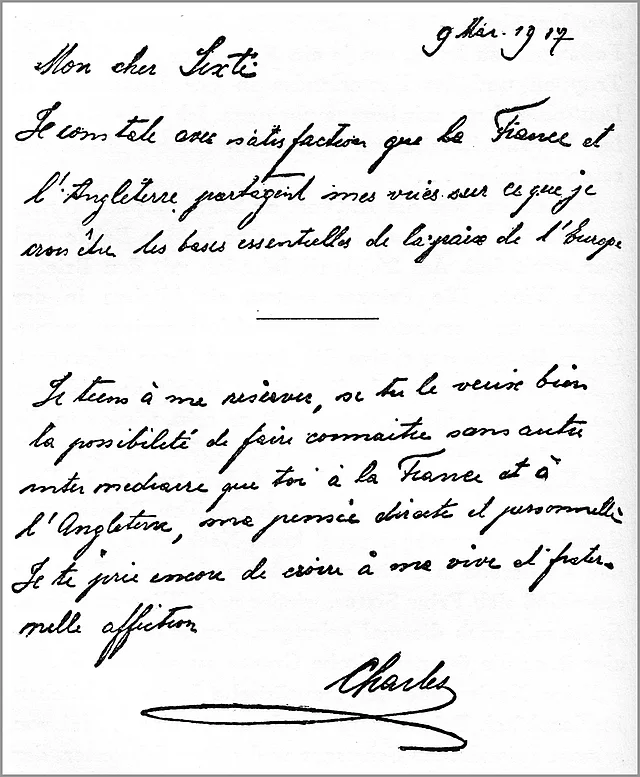 9 Mai. 1917
Mon cher Sixte
Je constate avec satisfaction que la France et
l'Angleterre partagent mes vues sur ce que je
crois être les bases essentielles de la paix de l'Europe
Je tiens à me réserver, si tu le veux bien
la possibilité de faire connaitre sans autre
intermediaire que toi à la France et à
l'Angleterre, ma pensée directe et personnelle
Je te prie encore de croire à ma vive et frater-
nelle affection
Charles